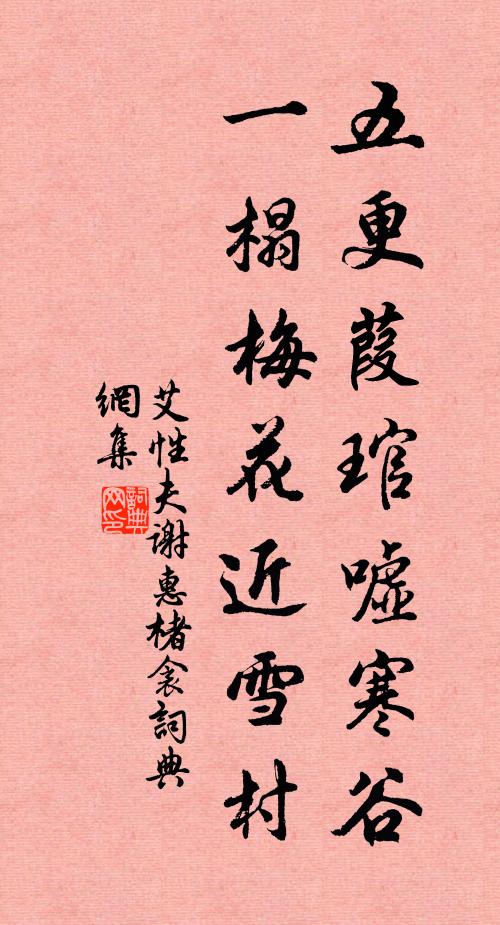 五更葭琯嘘寒谷
一榻梅花近雪村
艾性夫谢惠楮衾詞典
網集
詞典网印